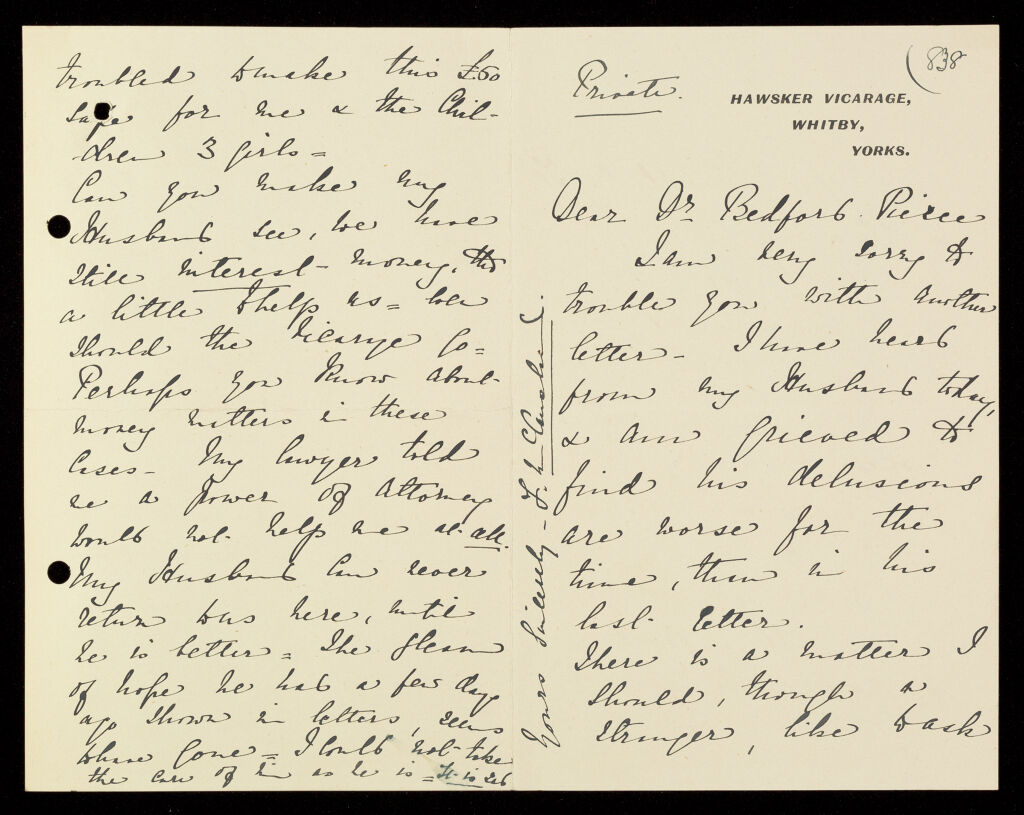 838
Private.
HAWSKER VICARAGE,
WHITBY,
YORKS.
Dear Dr. Bedford Pierce
I am very sorry to
trouble you with another
letter - I have heard
from my Husband today,
& am grieved to
find his delusions
are worse for the
time, than in his
last letter.
There is a matter I
should, though a
stranger, like to ask
troubled to make this £50
safe for me & the Chil-
dren 3 girls =
Can you make my
Husband see, we have
still interest - money, tho
a little to help us = even
should the Vicarage go =
Perhaps you know about
money matters in these
cases - My lawyer told
me a Power of Attorney
would not help me at all.
My Husband can never
return to us here, until
he is better = The gleam
of hope he had a few days
ago shown in letters, seems
to have gone = I could not take
the care of him as he is = It is sad
Yours Sincerely -